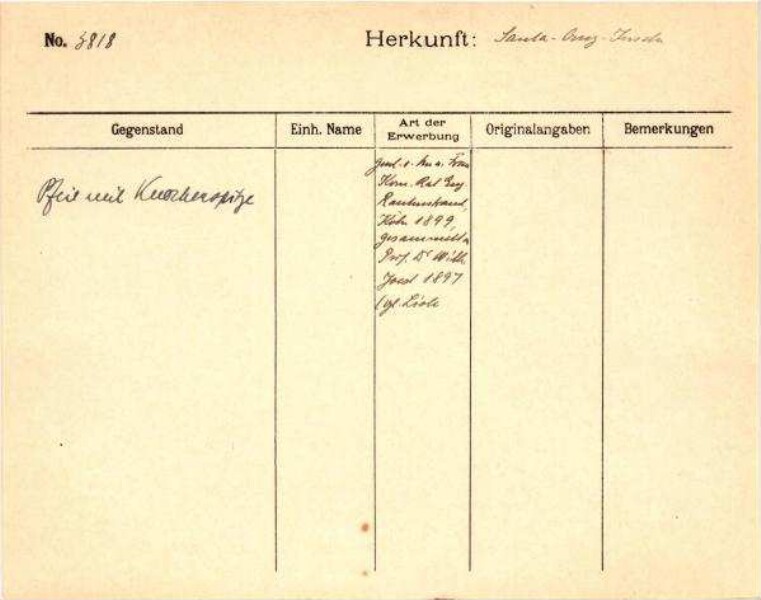 No. 3818
Herkunft: Santa-Cruz-Inseln
Gegenstand
Einh. Name
Art der Erwerbung
Originalangaben
Bemerkungen
Pfeil mit Knochenspitze
Frau
Kom. Rat Eug
Rautenstrauch,
Köln 1899,
gesammelt v.
Prof. Dr Wilh.
Joest 1897
(vgl. Liste